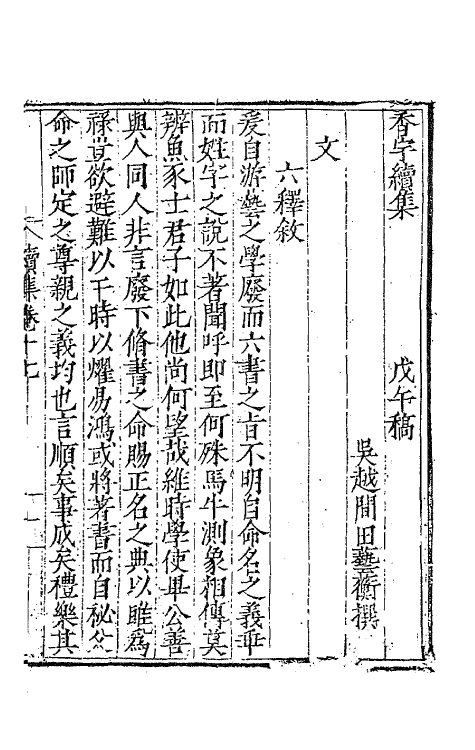 香宇續集　　　　戊午稿
吳越間田藝蘅撰
文
六釋敘
爰自游藝之學廢而六書之旨不明自命名之義乖
而姓字之說不著聞呼即至何殊馬牛測象相傳莫
辨魚豕士君子如此他尚何望哉維時學使畢公善
與人同人非言廢下脩書之命賜正名之典以雎爲
祿豈欲避難以干時以燿易鴻或將著書而自祕公
命之師定之尊親之義均也言順矣事成矣禮樂其
續集卷十七